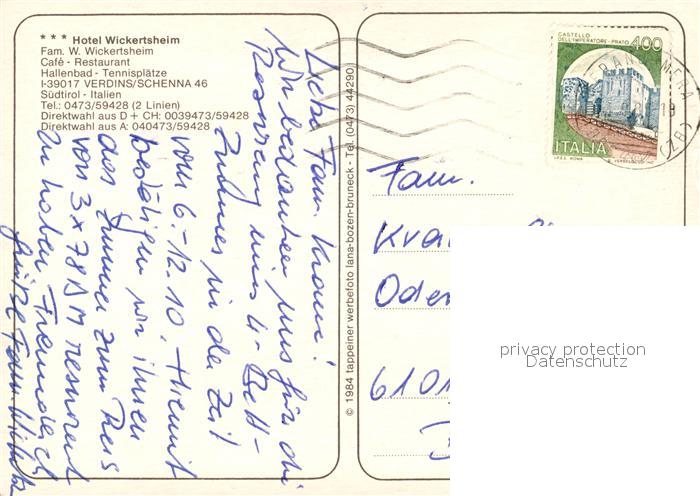 * * * Hotel Wickertsheim
Fam. W. Wickertsheim
Café - Restaurant
Hallenbad - Tennisplätze
I-39017 VERDINS/SCHENNA 46
Südtirol - Italien
Tel.: 0473/59428 (2 Linien)
Direktwahl aus D + CH: 0039473/59428
Direktwahl aus A: 040473/59428
Liebe Fam.
Wir bedanken uns für die
Reservierung eines 4-Bett-
Zimmers in der Zeit
vom 6.-12.10. Hiermit
bestätigen wir Ihnen
das Zimmer zum Preis
von 3x78 DM reserviert
zu haben
Grüße Fam.
© 1984 tappeiner werbefoto lana-bozen-bruneck - Tel. (0473) 44290
CASTELLO
DELL'IMPERATORE - PRATO
400
ITALIA
I.P.Z.S. ROMA
(BZ)
Fam.
Oden
6101
privacy protection
Datenschutz